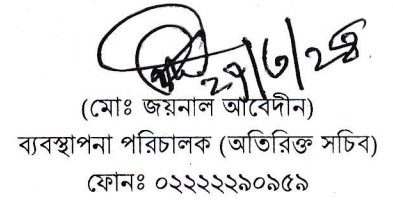 ২৭/৩/২৪
(মোঃ জয়নাল আবেদীন)
ব্যবস্থাপনা পরিচালক (অতিরিক্ত সচিব)
ফোনঃ ০২২২২২৯০৯৫৯